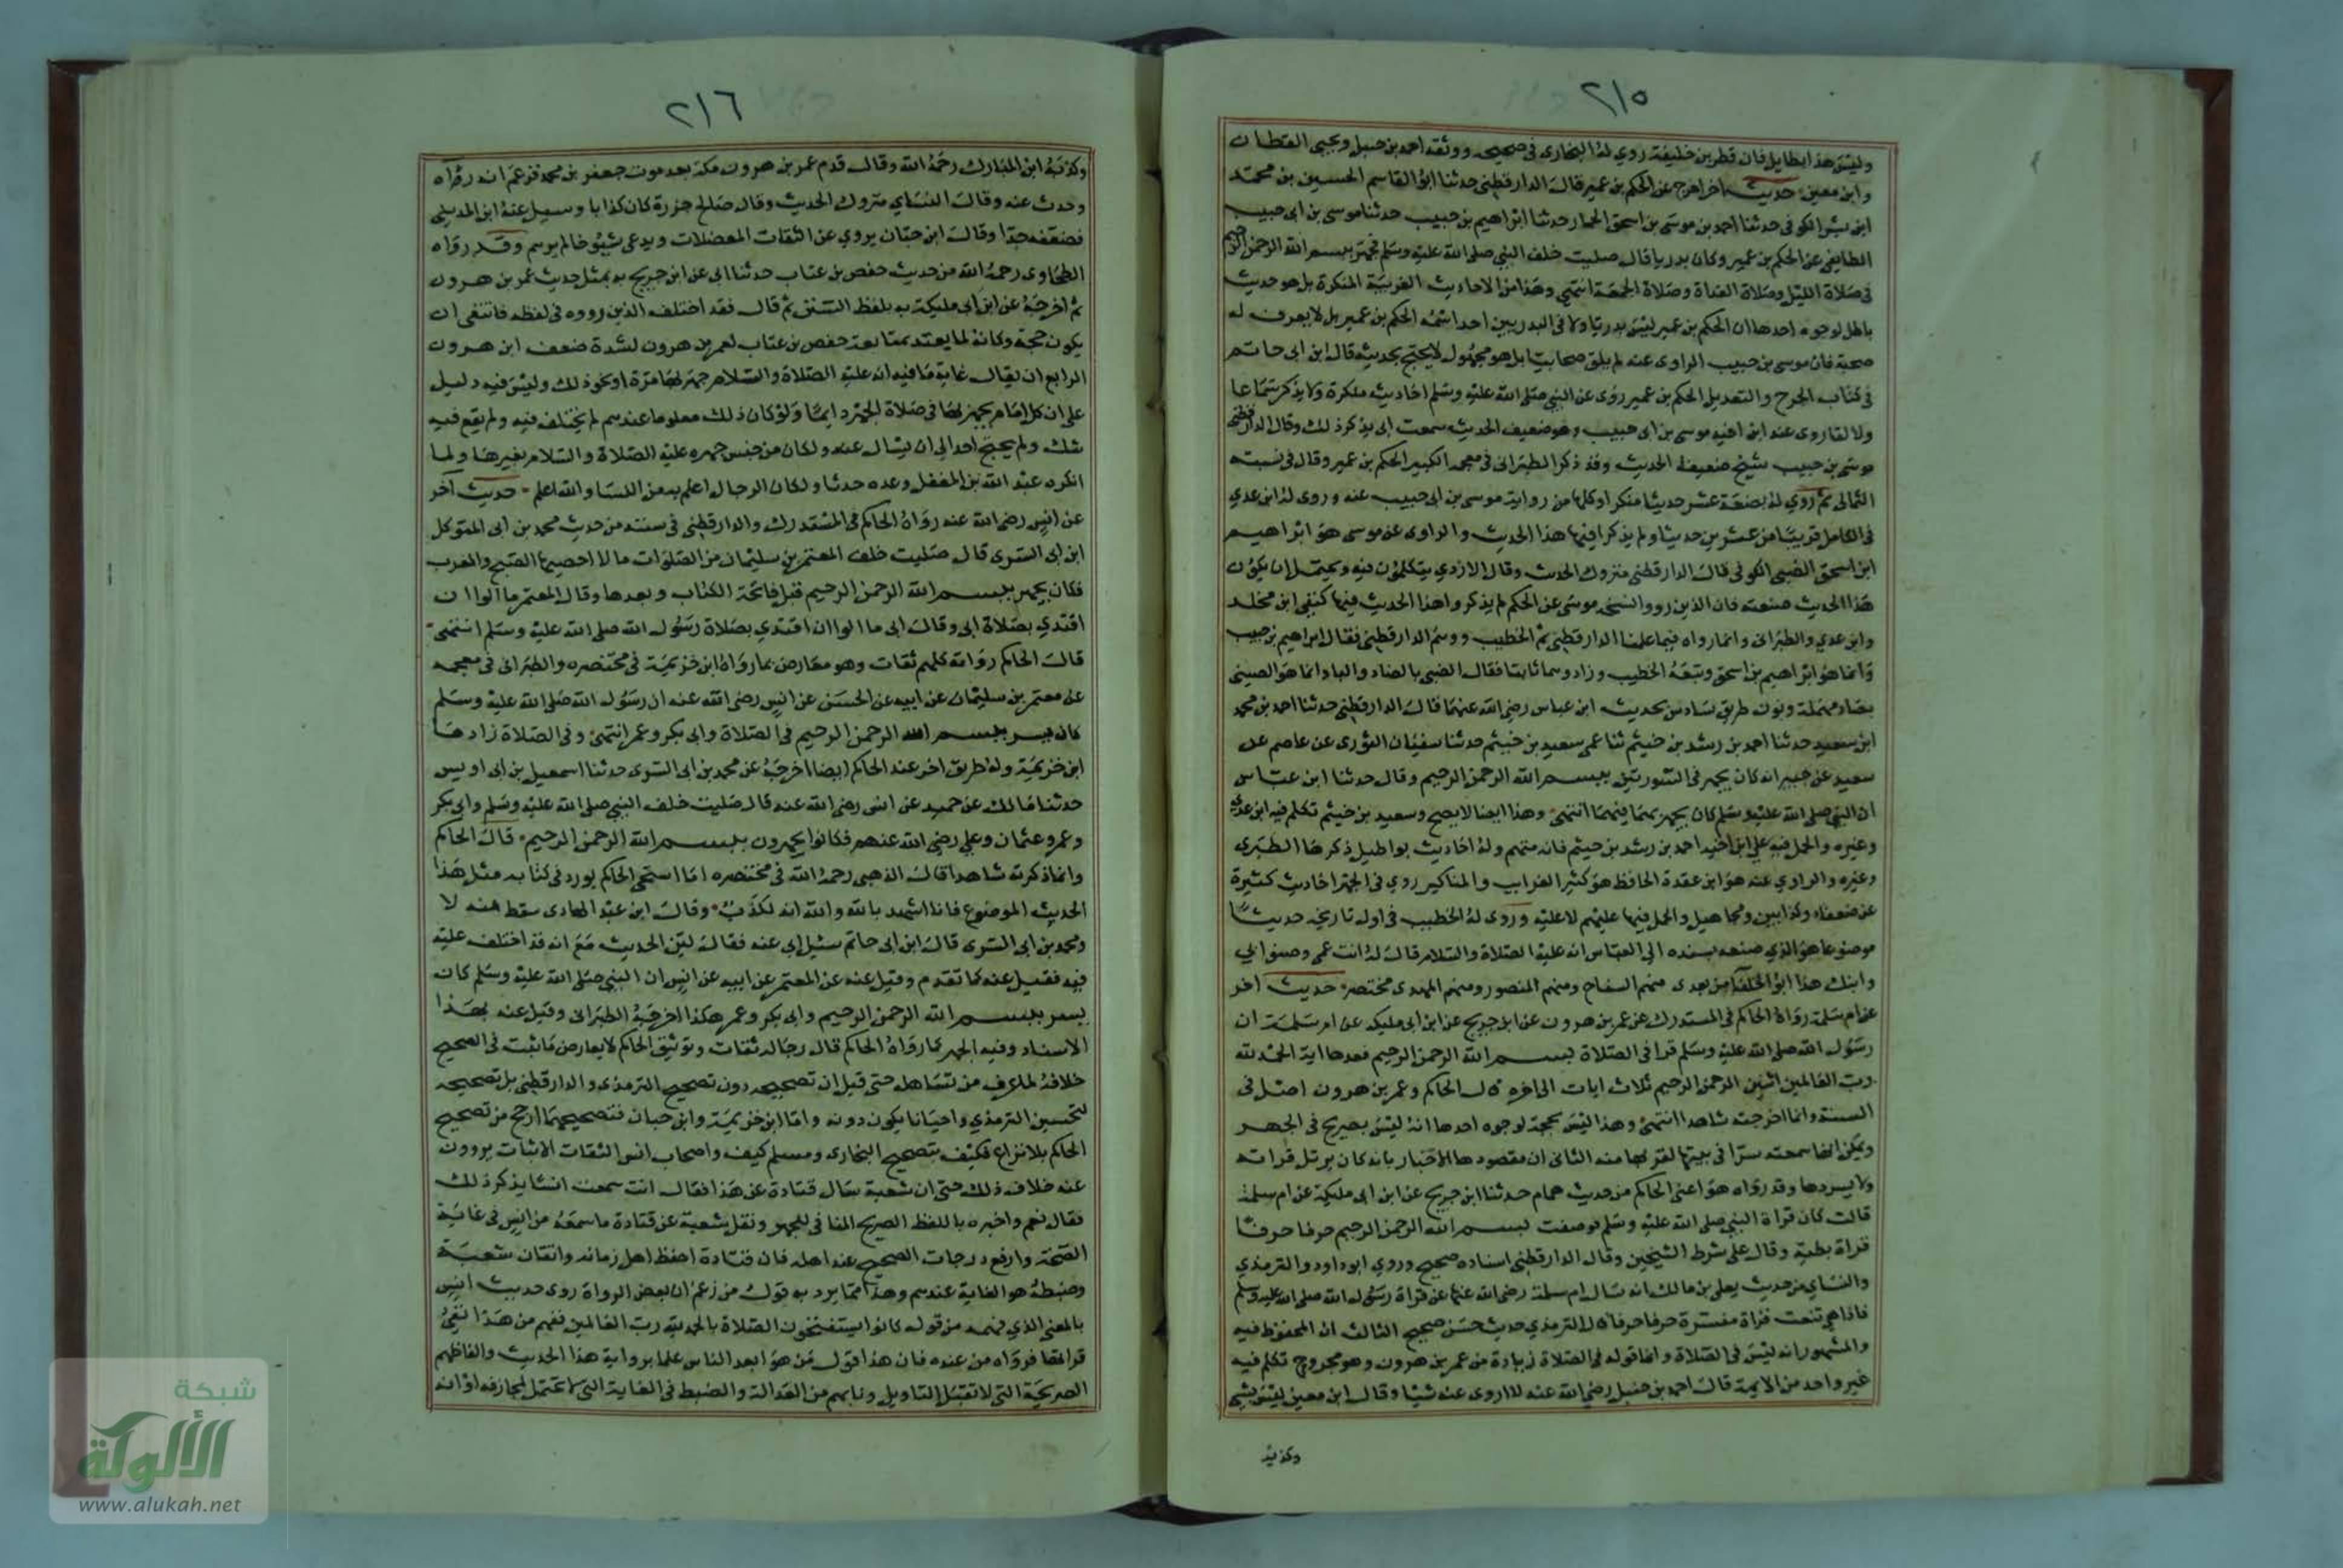 ٢١٥
وليس هذا بطايل فان فطر بن خليفة روي له البخارى فى صحيحه ووثقه احمد بن حنبل ويحيى القطان
وابن معين حديث اخر اخرج عن الحكم بن عمير قال الدارقطنى حدثنا ابو القاسم الحسين بن محمد
ابن بشر الكوفى حدثنا احمد بن موسى بن اسحق الحمار حدثنا ابراهيم بن حبيب حدثنا موسى بن ابى حبيب
الطايفى عن الحكم بن عمير وكان بدريا قال صليت خلف النبي صلى الله عليه وسلم فجهر ببسم الله الرحمن الرحيم
فى صلاة الليل وصلاة الغداة وصلاة الجمعة انتهى وهذا من الاحاديث الغريبة المنكرة بل هو حديث
باطل لوجوه احدها ان الحكم بن عمير ليس بدريا ولا فى البدريين احد اسمه الحكم بن عمير بل لا يعرف له
صحبة فان موسى بن حبيب الراوى عنه لم يلق صحابيا بل هو مجهول لا يحتج بحديثه قال ابن ابى حاتم
فى كتاب الجرح والتعديل الحكم بن عمير روى عن النبي صلى الله عليه وسلم احاديث منكرة ولا يذكر سماعا
ولا لقا روى عنه ابن اخيه موسى بن ابى حبيب وهو ضعيف الحديث سمعت ابى يذكر ذلك وقال الدارقطنى
موسى بن حبيب شيخ ضعيف الحديث وقد ذكر الطبرانى فى معجمه الكبير الحكم بن عمير وقال فى نسبته
الثمالى ثم روي له بضعة عشر حديثا منكرا وكلها من رواية موسى بن ابى حبيب عنه وروى له ابن عدي
فى الكامل قريبا من عشرين حديثا ولم يذكرا فيها هذا الحديث والراوى عن موسى هو ابراهيم
ابن اسحق الضبى الكوفى قال الدارقطنى متروك الحديث وقال الازدي يتكلمون فيه ويحتمل ان يكون
هذا الحديث صنعته فان الذين رووا نسخة موسى عن الحكم لم يذكروا هذا الحديث فيها كبقى ابن مخلد
وابن عدي والطبرانى وانما رواه فيما علمنا الدارقطنى ثم الخطيب ووهم الدارقطنى فقال ابراهيم بن حبيب
وانما هو ابراهيم بن اسحق وتبعه الخطيب وزاد وهما ثانيا فقال الضبى بالضاد والباء وانما هو الصينى
بصاد مهملة ونون طريق سادس بحديث ابن عباس رضى الله عنهما قال الدارقطنى حدثنا احمد بن محمد
ابن سعيد حدثنا احمد بن رشد بن خثيم ثنا عمى سعيد بن خثيم حدثنا سفيان الثورى عن عاصم عن
سعيد عن جبير انه كان يجهر فى السورتين ببسم الله الرحمن الرحيم وقال حدثنا ابن عباس
ان النبى صلى الله عليه وسلم كان يجهر بهما فيهما انتهى وهذا ايضا لا يصح وسعيد بن خثيم تكلم فيه ابن عدي
وغيره والحمل فيه على ابن اخيه احمد بن رشد بن خثيم فانه متهم وله احاديث بواطيل ذكرها الطبرى
وغيره والراوي عنه هو ابن عقدة الحافظ هو كثير الغرايب والمناكير روي فى الجهر احاديث كثيرة
عن ضعفاء وكذابين ومجاهيل والحمل فيها عليهم لا عليه وروى له الخطيب فى اول تاريخه حديثا
موضوعا هو الذي صنعه بسنده الى العباس انه عليه الصلاة والسلام قال له انت عمى وصنو ابي
وابنك هذا ابو الخلفا من بعدى منهم السفاح ومنهم المنصور ومنهم المهدى مختصر حديث اخر
عن ام سلمة رواه الحاكم فى المستدرك عن عمر بن هرون عن ابن جريج عن ابن ابى مليكة عن ام سلمة ان
رسول الله صلى الله عليه وسلم قرا فى الصلاة بسم الله الرحمن الرحيم فعدها اية الحمد لله
رب العالمين اثنين الرحمن الرحيم ثلاث ايات الى اخره قال الحاكم وعمر بن هرون اصل فى
السنة وانما اخرجته شاهدا انتهى وهذا ليس بحجة لوجوه احدها انه ليس بصريح فى الجهر
ويمكن انها سمعته سرا فى بيتها لقربها منه الثانى ان مقصودها الاخبار بانه كان يرتل قراته
ولا يسردها وقد رواه هو اعنى الحاكم من حديث همام حدثنا ابن جريج عن ابن ابى مليكة عن ام سلمة
قالت كان قراة النبي صلى الله عليه وسلم فوصفت بسم الله الرحمن الرحيم حرفا حرفا
قراة بطية وقال على شرط الشيخين وقال الدارقطنى اسناده صحيح وروي ابو داود والترمذي
والنساي من حديث يعلى بن مالك انه سال ام سلمة رضى الله عنها عن قراة رسول الله صلى الله عليه وسلم
فاذا هى تنعت قراة مفسرة حرفا حرفا قال الترمذي حديث حسن صحيح الثالث ان المحفوظ فيه
والمشهور انه ليس فى الصلاة وانما قوله فى الصلاة زيادة من عمر بن هرون وهو مجروح تكلم فيه
غير واحد من الايمة قال احمد بن حنبل رضى الله عنه لا اروى عنه شيئا وقال ابن معين ليس بشى
وكذبه
٢١٦
وكذبه ابن المبارك رحمه الله وقال قدم عمر بن هرون مكة بعد موت جعفر بن محمد فزعم انه رآه
وحدث عنه وقال النساي متروك الحديث وقال صالح جزرة كان كذابا وسيل عنه ابن المديني
فضعفه جدا وقال ابن حبان يروي عن الثقات المعضلات ويدعى شيوخا لم يرهم وقد رواه
الطحاوى رحمه الله من حديث حفص بن غياث حدثنا ابى عن ابن جريج به بمثل حديث عمر بن هرون
ثم اخرجه عن ابن ابى مليكة به بلفظ السنن ثم قال فقد اختلف الذين رووه فى لفظه فانتفى ان
يكون حجة وكانه لما يعتد بمتابعة حفص بن غياث لعمر بن هرون لشدة ضعف ابن هرون
الرابع ان يقال غاية ما فيه انه عليه الصلاة والسلام جهر بها مرة او نحو ذلك وليس فيه دليل
على ان كل امام يجهر بها فى صلاة الجهر دايما ولو كان ذلك معلوما عندهم لم يختلف فيه ولم يقع فيه
شك ولم يحتج احد الى ان يسال عنه ولكان من جنس جهره عليه الصلاة والسلام بغيرها ولما
انكره عبد الله بن المغفل وعده حدثا ولكان الرجال اعلم به من النسا والله اعلم حديث آخر
عن انس رضى الله عنه رواه الحاكم فى المستدرك والدارقطنى فى سننه من حديث محمد بن ابى المتوكل
ابن ابى السرى قال صليت خلف المعتمر بن سليمان من الصلوات ما لا احصيها الصبح والمغرب
فكان يجهر ببسم الله الرحمن الرحيم قبل فاتحة الكتاب وبعدها وقال المعتمر ما آلوا ان
اقتدي بصلاة ابى وقال ابى ما الوا ان اقتدي بصلاة رسول الله صلى الله عليه وسلم انتهى
قال الحاكم رواته كلهم ثقات وهو معارض بما رواه ابن خزيمة فى مختصره والطبرانى فى معجمه
عن معتمر بن سليمان عن ابيه عن الحسن عن انس رضى الله عنه ان رسول الله صلى الله عليه وسلم
كان يسر ببسم الله الرحمن الرحيم فى الصلاة وابى بكر وعمر انتهى وفى الصلاة زادها
ابن خزيمة وله طريق اخر عند الحاكم ايضا اخرجه عن محمد بن ابى السرى حدثنا اسمعيل بن ابى اويس
حدثنا مالك عن حميد عن انس رضى الله عنه قال صليت خلف النبي صلى الله عليه وسلم وابى بكر
وعمر وعثمان وعلي رضى الله عنهم فكانوا يجهرون ببسم الله الرحمن الرحيم قال الحاكم
وانما ذكرته شاهدا قال الذهبى رحمه الله فى مختصره اما استحى الحاكم يورد فى كتابه مثل هذا
الحديث الموضوع فانا اشهد بالله والله انه لكذب وقال ابن عبد الهادى سقط منه لا
ومحمد بن ابى السرى قال ابن ابى حاتم سئل ابى عنه فقال لين الحديث مع انه قد اختلف عليه
فيه فقيل عنه كما تقدم وقيل عنه عن المعتمر عن ابيه عن انس ان النبي صلى الله عليه وسلم كان
يسر ببسم الله الرحمن الرحيم وابى بكر وعمر هكذا اخرجه الطبرانى وقيل عنه بهذا
الاسناد وفيه الجهر كما رواه الحاكم قال رجاله ثقات وتوثيق الحاكم لا يعارض ما ثبت فى الصحيح
خلافه لما عرف من تساهله حتى قيل ان تصحيحه دون تصحيح الترمذى والدارقطنى بل تصحيحه
لتحسين الترمذي واحيانا يكون دونه واما ابن خزيمة وابن حبان فتصحيحهما ارجح من تصحيح
الحاكم بلا نزاع فكيف بتصحيح البخارى ومسلم كيف واصحاب انس الثقات الاثبات يروون
عنه خلاف ذلك حتى ان شعبة سال قتادة عن هذا فقال انت سمعت انسا يذكر ذلك
فقال نعم واخبره باللفظ الصريح المنافى للجهر ونقل شعبة عن قتادة ما سمعه من انس فى غاية
الصحة وارفع درجات الصحيح عند اهله فان قتادة احفظ اهل زمانه واتقان شعبة
وضبطه هو الغاية عندهم وهذا مما يرد به قول من زعم ان بعض الرواة روى حديث انس
بالمعنى الذي فهمه من قوله كانوا يستفتحون الصلاة بالحمد لله رب العالمين ففهم من هذا نفى
قراتها فرواه من عنده فان هذا قول من هو ابعد الناس علما برواية هذا الحديث والفاظهم
الصريحة التى لا تقبل التاويل وبانهم من العدالة والضبط فى الغاية التى لا تحتمل المجازفه او انه
شبكة
الألوكة
www.alukah.net